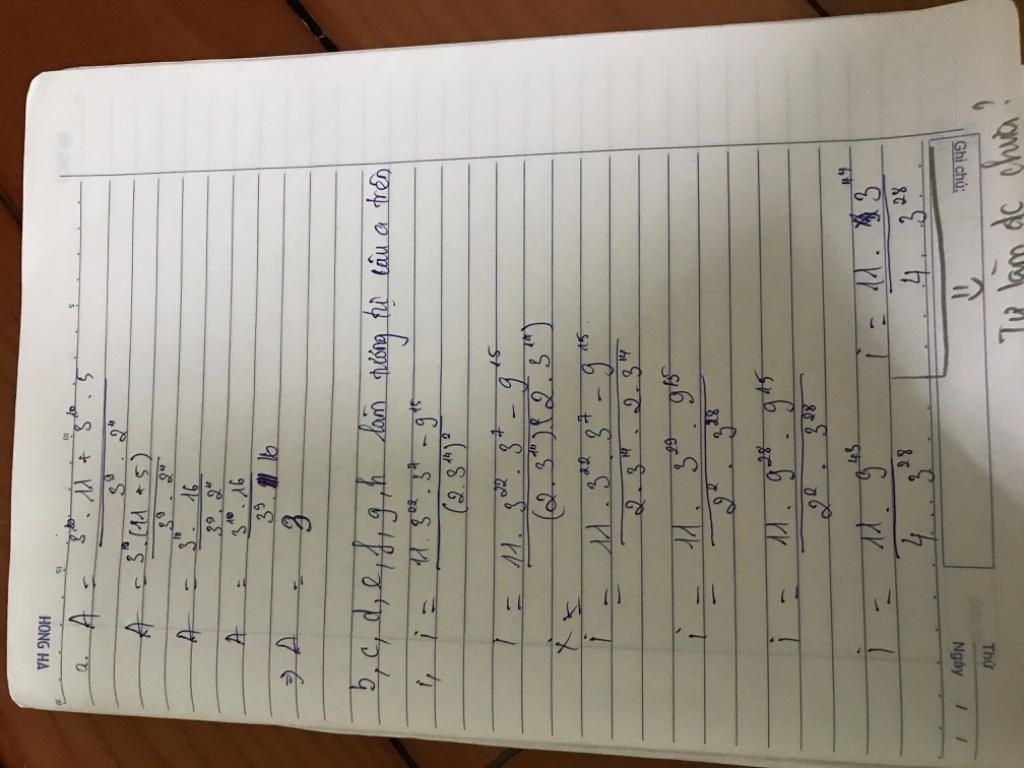 HONG HA
a. A = 3^10 . 11 + 3^10 . 5 / 3^9 . 2^4
A = 3^10 (11 + 5) / 3^9 . 2^4
A = 3^10 . 16 / 3^9 . 2^4
A = 3^10 . 16 / 3^9 . 16
=> A = 3
b, c, d, e, f, g, h làm tương tự câu a trên
i, i = 11 . 3^22 . 3^7 - 9^15 / (2 . 3^14)^2
i = 11 . 3^22 . 3^7 - 9^15 / (2 . 3^14)(2 . 3^14)
i = 11 . 3^22 . 3^7 - 9^15 / 2 . 3^14 . 2 . 3^14
i = 11 . 3^29 . 9^15 / 2^2 . 3^28
i = 11 . 9^28 . 9^15 / 2^2 . 3^28
i = 11 . 9^43 / 4 . 3^28
i = 11 . 3^44 / 4 . 3^28
Ghi chú:
Thứ
Ngày / /
Tự làm đc chưa?